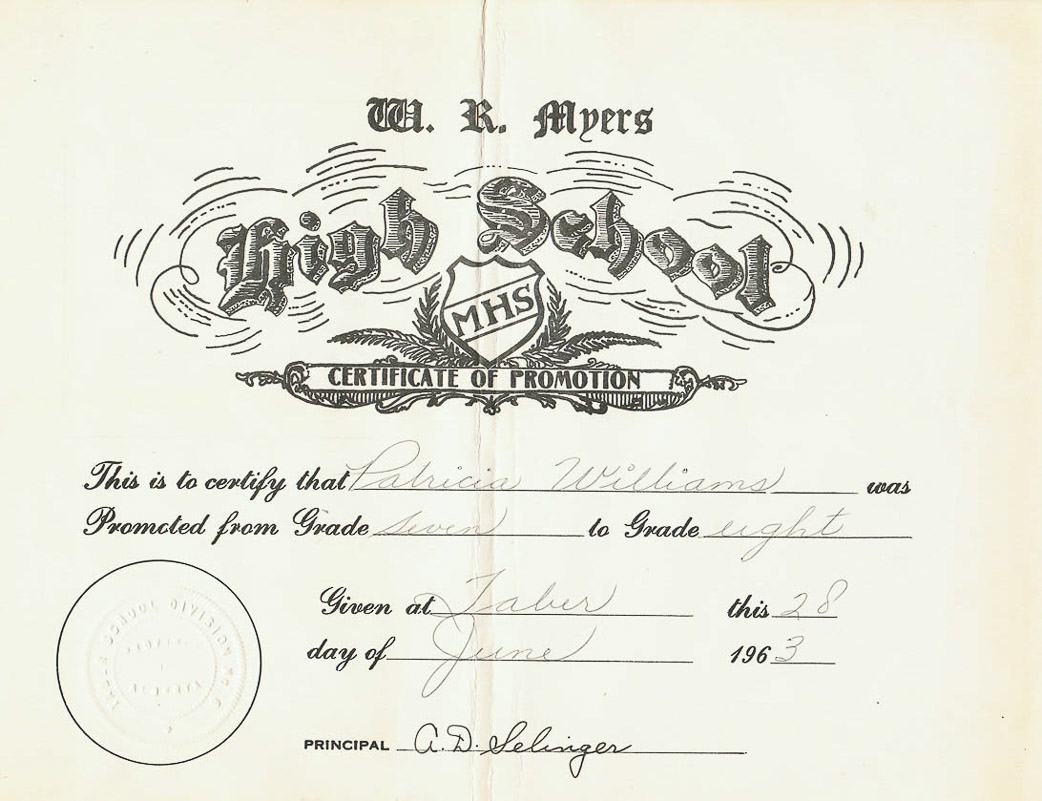 W. R. Myers
High School
MHS
CERTIFICATE OF PROMOTION
This is to certify that Patricia Williams was
Promoted from Grade seven to Grade eight
Given at Taber this 28
day of June 1963
PRINCIPAL A. D. Selinger
SCHOOL DIVISION